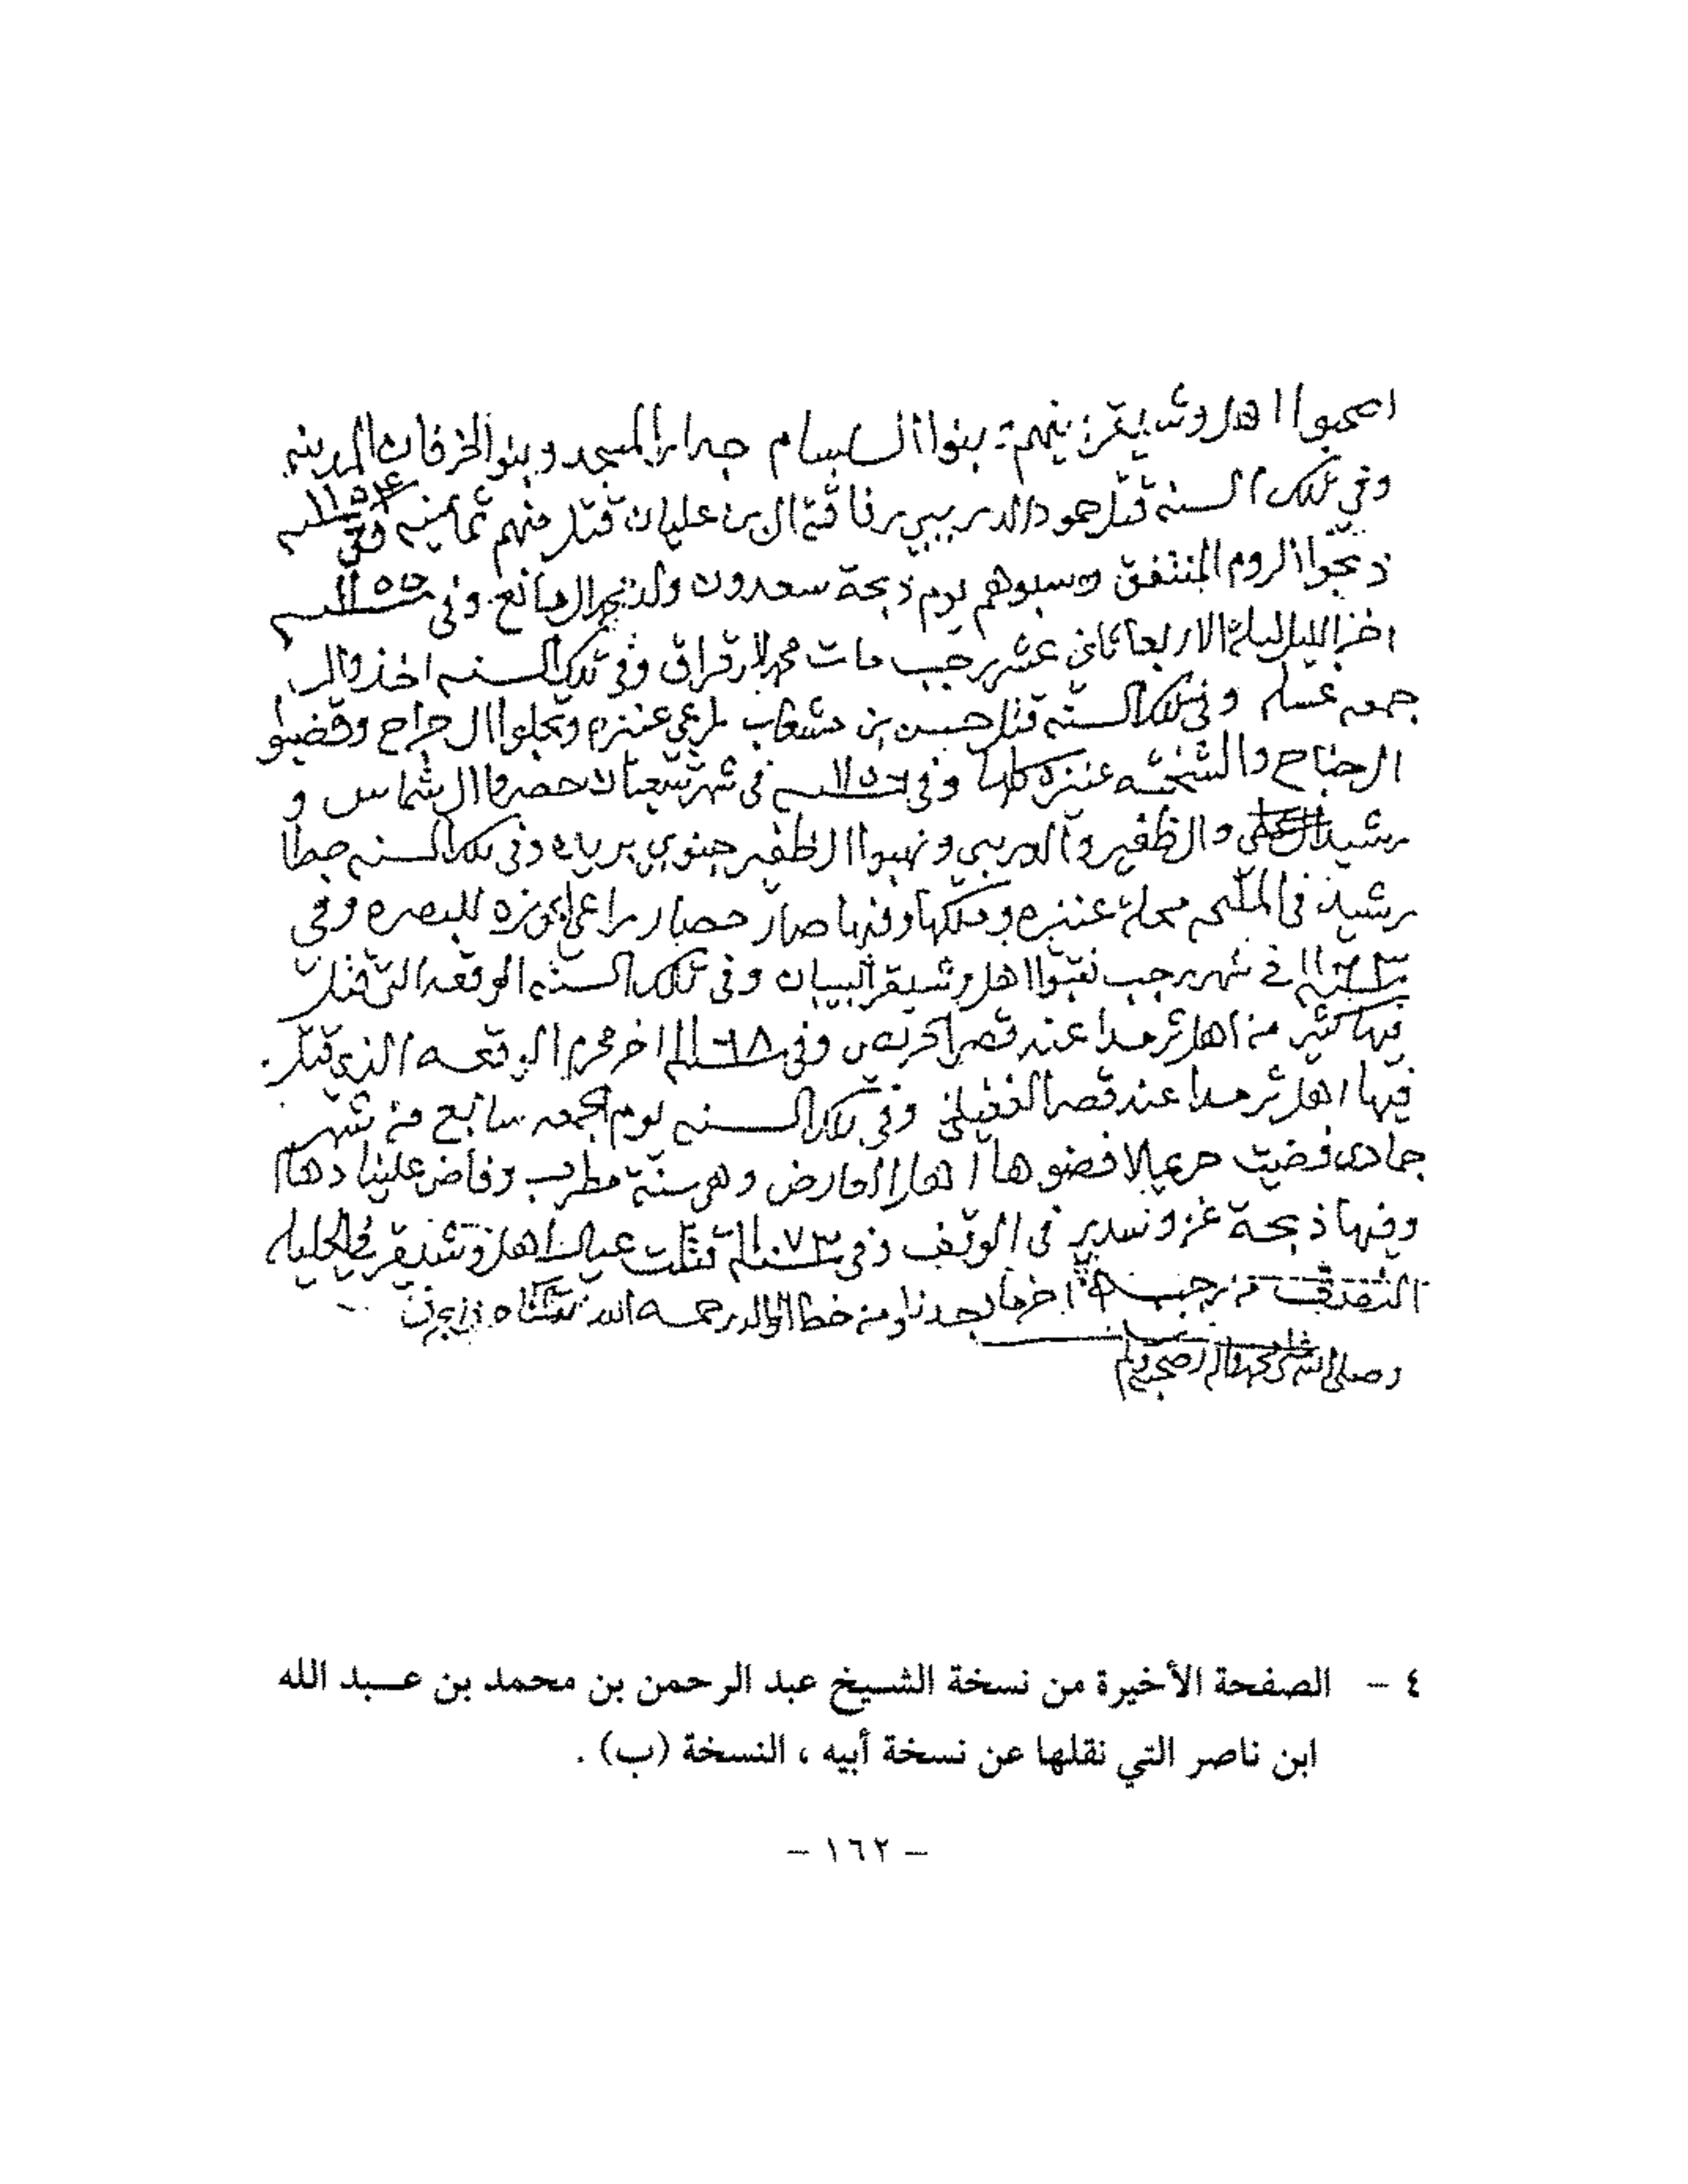 اصحبوا اهل وشيقر بينهم بنوا ال بسام جدار المسجد وبنو الخرفان المدينه
وفي تلك السنه قتل حمود الدريبي رفاقته ال بن عليان قتل منهم ثمانيه وفي ١١٥٤
ذبحوا الروم المنتفق وسبوهم يوم ذبحة سعدون ولد محمد المانع وفي ١١٥٥
اخر الليل ليلة الاربعا ثاني عشر رجب مات محمد وفي تلك السنه اخذ
جمعه وفي تلك السنه قتل حسن بن مشعاب راعي عنيزه وجلوا ال جراح وقضبوا
الجناح والشختة عنيزه كلها وفي ١١٥٦ في شهر شعبان حصروا ال شماس و
رشيد والظفير والدريبي ونهبوا الظفير جنوبي بريده وفي تلك السنه حطا
رشيد في المليحه محلة عنيزه وملكها وفيها صار حصار للبصره وفي
في شهر رجب اهل وشيقر البيبان وفي تلك السنه الوقعه التي قتل
فيها كثير من اهل ثرمدا عند قصر الحريص وفي ١١٦٨ اخر محرم الوقعه الذي قتل
فيها اهل ثرمدا عند قصر الغفيلي وفي تلك السنه يوم الجمعه سابع من شهر
جمادى قضيت حريملا قضوها اهل العارض وهي سنة مطرب وفاض علينا دهام
وفيها ذبحة غزو سدير في الوقف وفي ١١٧٣ قتلت عيال اهل وشيقر في الحليله
من رجب اخر ما وجدنا ومن خط الوالد رحمه الله نقلناه
وصلى الله على محمد واله وصحبه وسلم
٤ - الصفحة الأخيرة من نسخة الشيخ عبد الرحمن بن محمد بن عبد الله
ابن ناصر التي نقلها عن نسخة أبيه ، النسخة (ب) .
- ١٦٢ -